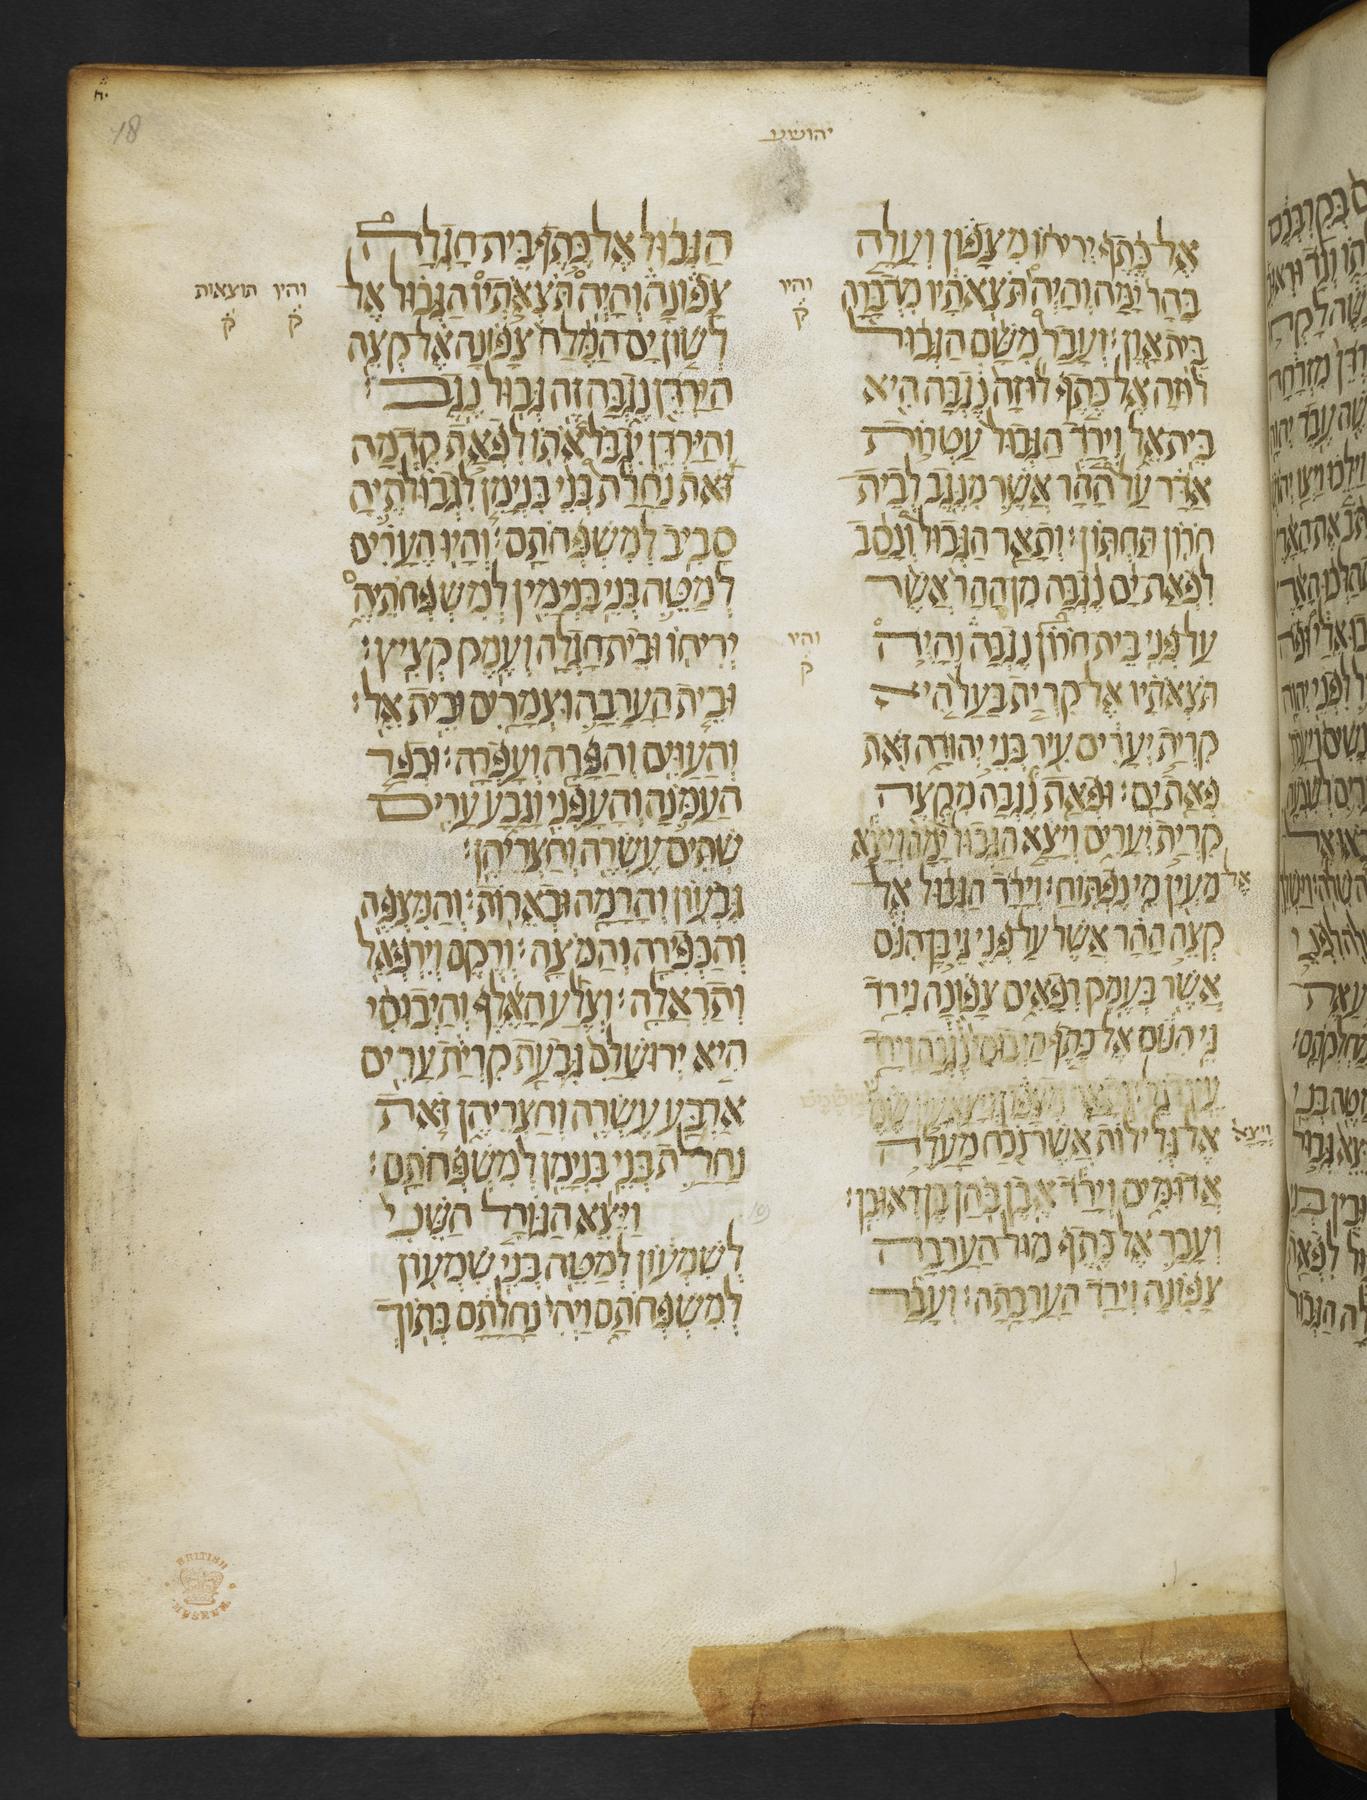 יהושע
18
אֶל כֶּתֶף יְרִיחוֹ מִצָּפוֹן וְעָלָה
בָהָר יָמָּה וְהָיָה תֹּצְאֹתָיו מִדְבַּרָה
בֵּית אָוֶן׃ וְעָבַר מִשָּׁם הַגְּבוּל
לוּזָה אֶל כֶּתֶף לוּזָה נֶגְבָּה הִיא
בֵּית אֵל וְיָרַד הַגְּבוּל עַטְרוֹת
אַדָּר עַל הָהָר אֲשֶׁר מִנֶּגֶב לְבֵית
חֹרוֹן תַּחְתּוֹן׃ וְתָאַר הַגְּבוּל וְנָסַב
לִפְאַת יָם נֶגְבָּה מִן הָהָר אֲשֶׁר
עַל פְּנֵי בֵית חֹרוֹן נֶגְבָּה וְהָיָה
תֹּצְאֹתָיו אֶל קִרְיַת בַּעַל הִיא
קִרְיַת יְעָרִים עִיר בְּנֵי יְהוּדָה זֹאת
פְּאַת יָם׃ וּפְאַת נֶגְבָּה מִקְצֵה
קִרְיַת יְעָרִים וְיָצָא הַגְּבוּל יָמָּה וְיָצָא
אֶל מַעְיַן מֵי נֶפְתּוֹחַ׃ וְיָרַד הַגְּבוּל אֶל
קְצֵה הָהָר אֲשֶׁר עַל פְּנֵי גֵּי בֶן הִנֹּם
אֲשֶׁר בְּעֵמֶק רְפָאִים צָפוֹנָה וְיָרַד
גֵּי הִנֹּם אֶל כֶּתֶף הַיְבוּסִי נֶגְבָּה וְיָרַד
עֵין רֹגֵל׃ וְתָאַר מִצָּפוֹן וְיָצָא עֵין שֶׁמֶשׁ
וְיָצָא אֶל גְּלִילוֹת אֲשֶׁר נֹכַח מַעֲלֵה
אֲדֻמִּים וְיָרַד אֶבֶן בֹּהַן בֶּן רְאוּבֵן׃
וְעָבַר אֶל כֶּתֶף מוּל הָעֲרָבָה
צָפוֹנָה וְיָרַד הָעֲרָבָתָה׃ וְעָבַר
והיו
ק
והיו
ק
הַגְּבוּל אֶל כֶּתֶף בֵּית חָגְלָה
צָפוֹנָה וְהָיָה תֹּצְאֹתָיו הַגְּבוּל אֶל
לְשׁוֹן יָם הַמֶּלַח צָפוֹנָה אֶל קְצֵה
הַיַּרְדֵּן נֶגְבָּה זֶה גְּבוּל נֶגֶב׃
וְהַיַּרְדֵּן יִגְבֹּל אֹתוֹ לִפְאַת קֵדְמָה
זֹאת נַחֲלַת בְּנֵי בִנְיָמִן לִגְבוּלֹתֶיהָ
סָבִיב לְמִשְׁפְּחֹתָם׃ וְהָיוּ הֶעָרִים
לְמַטֵּה בְּנֵי בִנְיָמִין לְמִשְׁפְּחֹתֵיהֶ
יְרִיחוֹ וּבֵית חָגְלָה וְעֵמֶק קְצִיץ׃
וּבֵית הָעֲרָבָה וּצְמָרַיִם וּבֵית אֵל׃
וְהָעַוִּים וְהַפָּרָה וְעָפְרָה׃ וּכְפַר
הָעַמֹּנָה וְהָעָפְנִי וָגָבַע עָרִים
שְׁתֵּים עֶשְׂרֵה וְחַצְרֵיהֶן׃
גִּבְעוֹן וְהָרָמָה וּבְאֵרוֹת׃ וְהַמִּצְפֶּה
וְהַכְּפִירָה וְהַמֹּצָה׃ וְרֶקֶם וְיִרְפְּאֵל
וְתַרְאֲלָה׃ וְצֵלַע הָאֶלֶף וְהַיְבוּסִי
הִיא יְרוּשָׁלִַם גִּבְעַת קִרְיַת עָרִים
אַרְבַּע עֶשְׂרֵה וְחַצְרֵיהֶן זֹאת
נַחֲלַת בְּנֵי בִנְיָמִן לְמִשְׁפְּחֹתָם׃
וַיֵּצֵא הַגּוֹרָל הַשֵּׁנִי
לְשִׁמְעוֹן לְמַטֵּה בְנֵי שִׁמְעוֹן
לְמִשְׁפְּחֹתָם וַיְהִי נַחֲלָתָם בְּתוֹךְ
והיו תוצאות
ק ק
BRITISH
MUSEUM